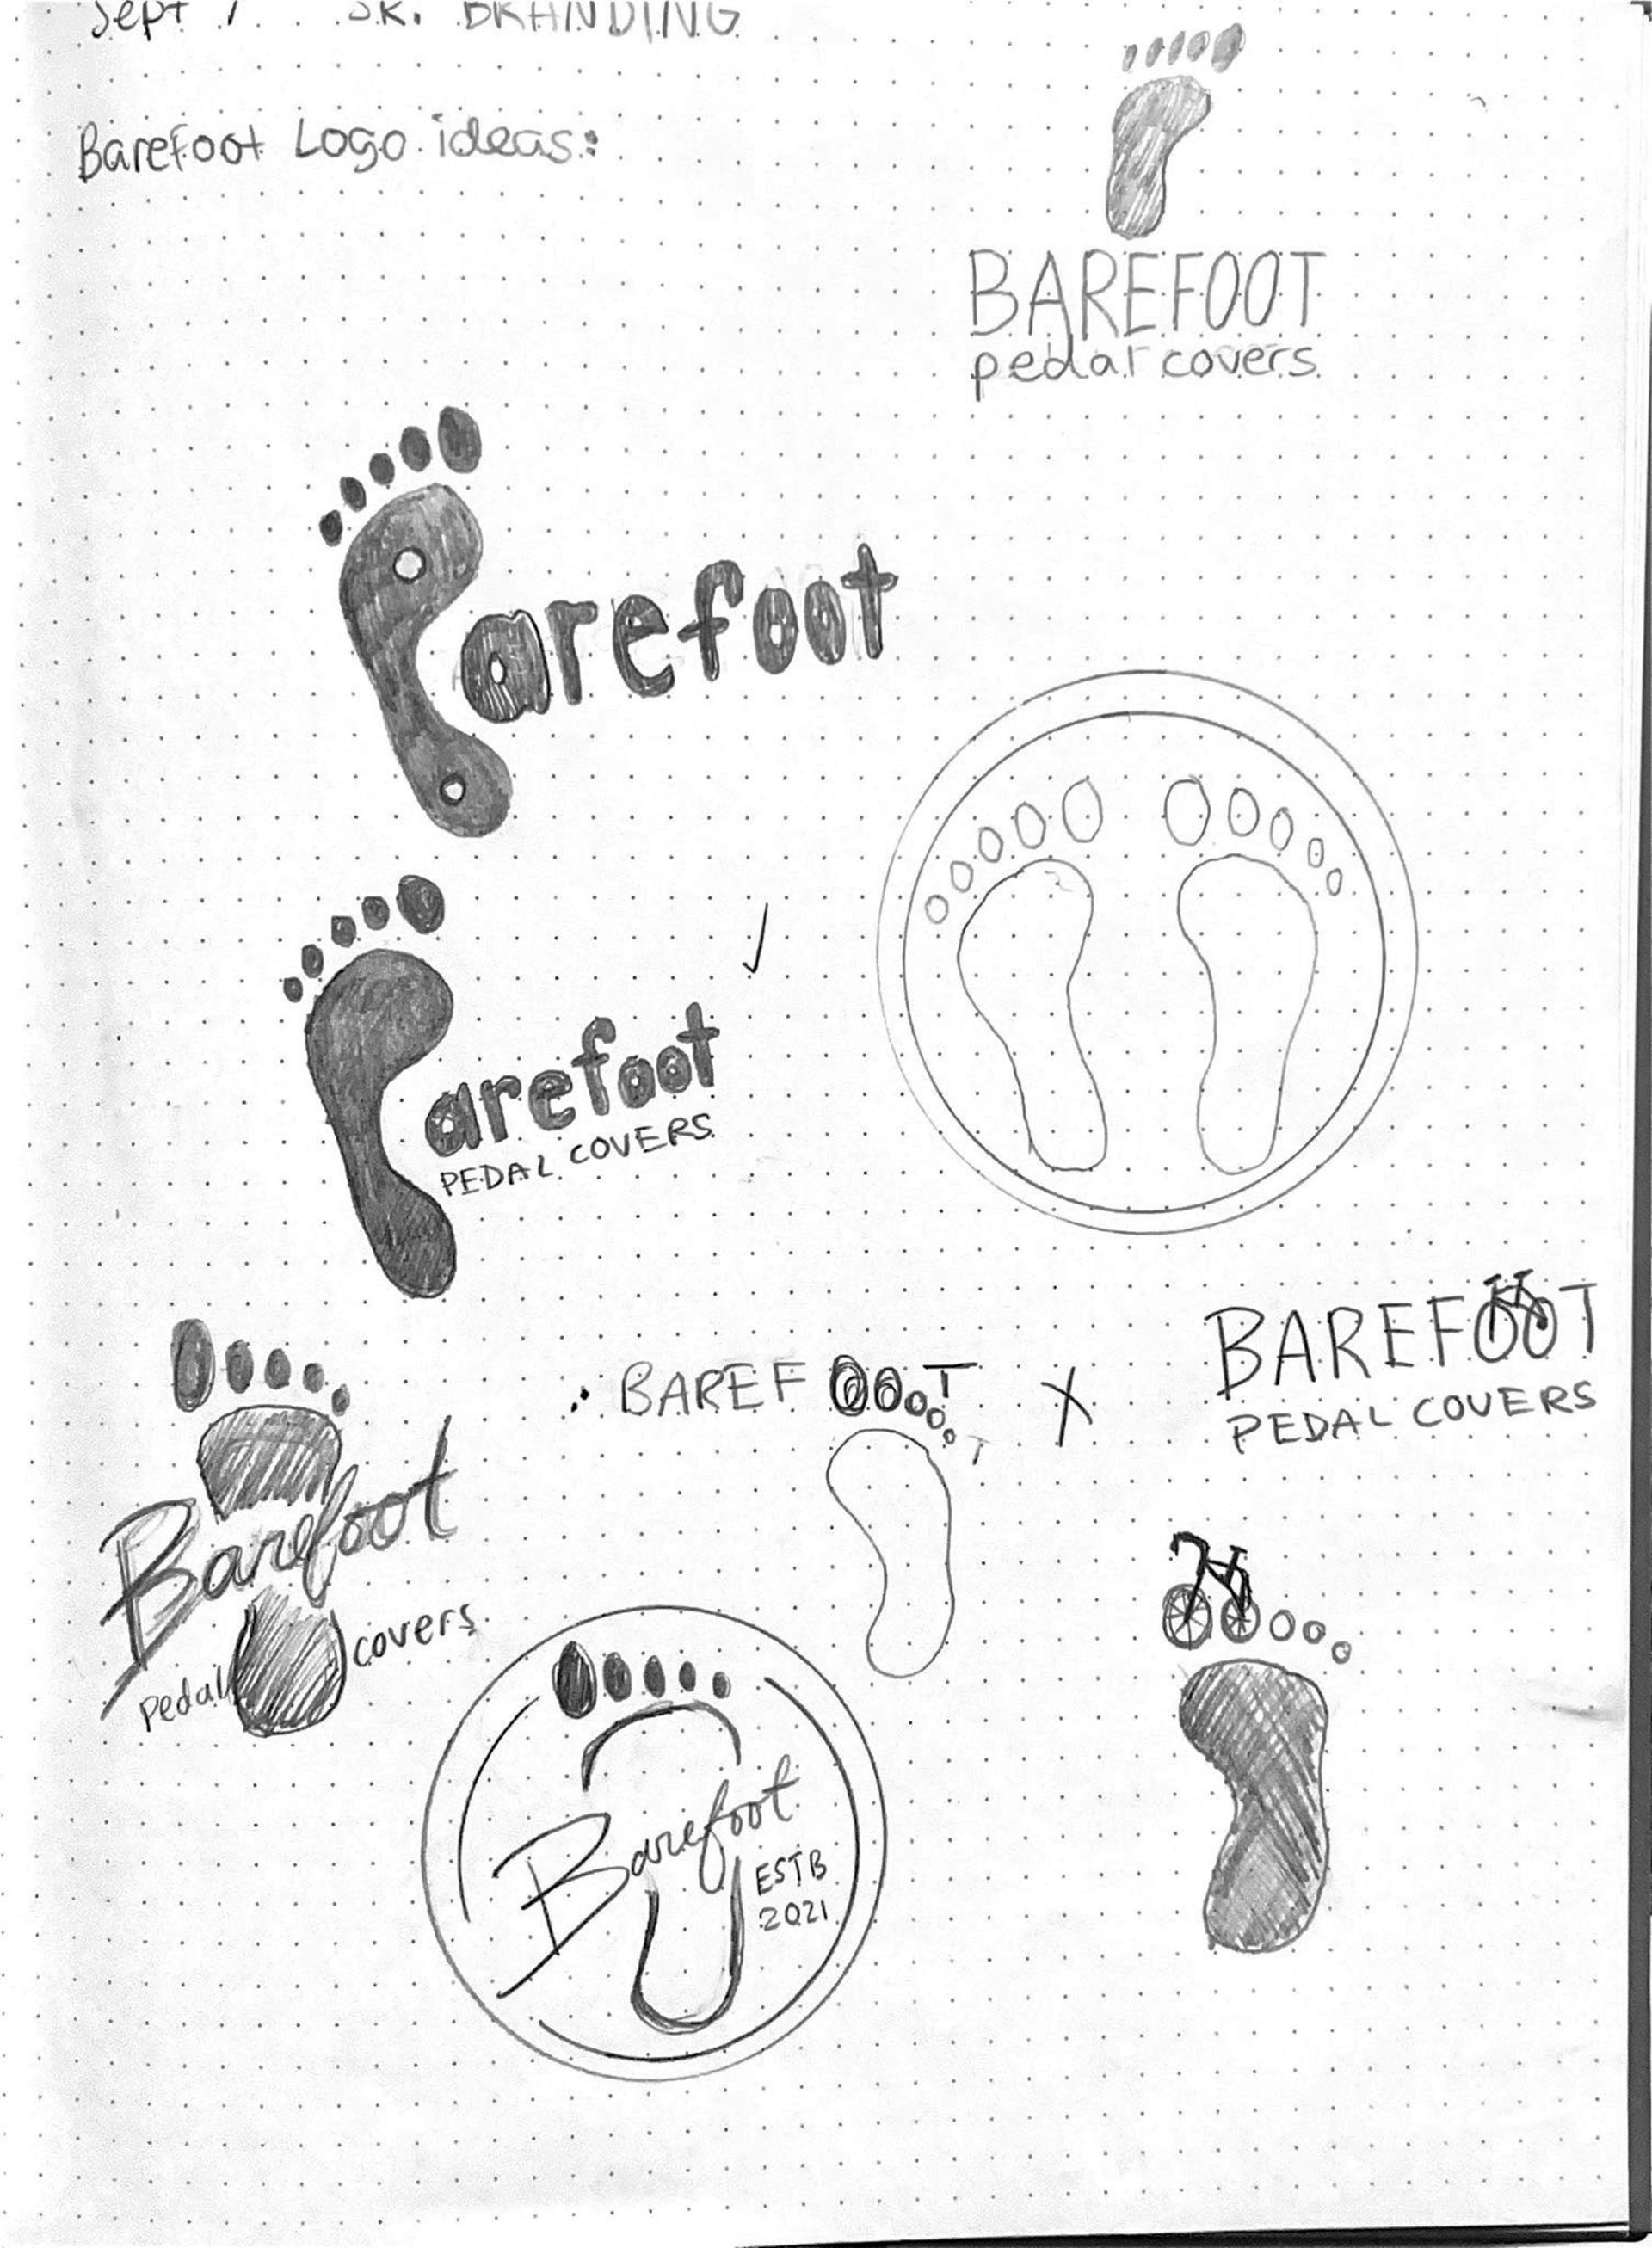 Sept 7 SK. BRANDING
Barefoot Logo ideas:
BAREFOOT
pedal covers
arefoot
arefoot
PEDAL COVERS
BAREFOOT
PEDAL COVERS
BAREF OOooT
T
X
Barefoot
pedal covers
Barefoot
ESTB
2021